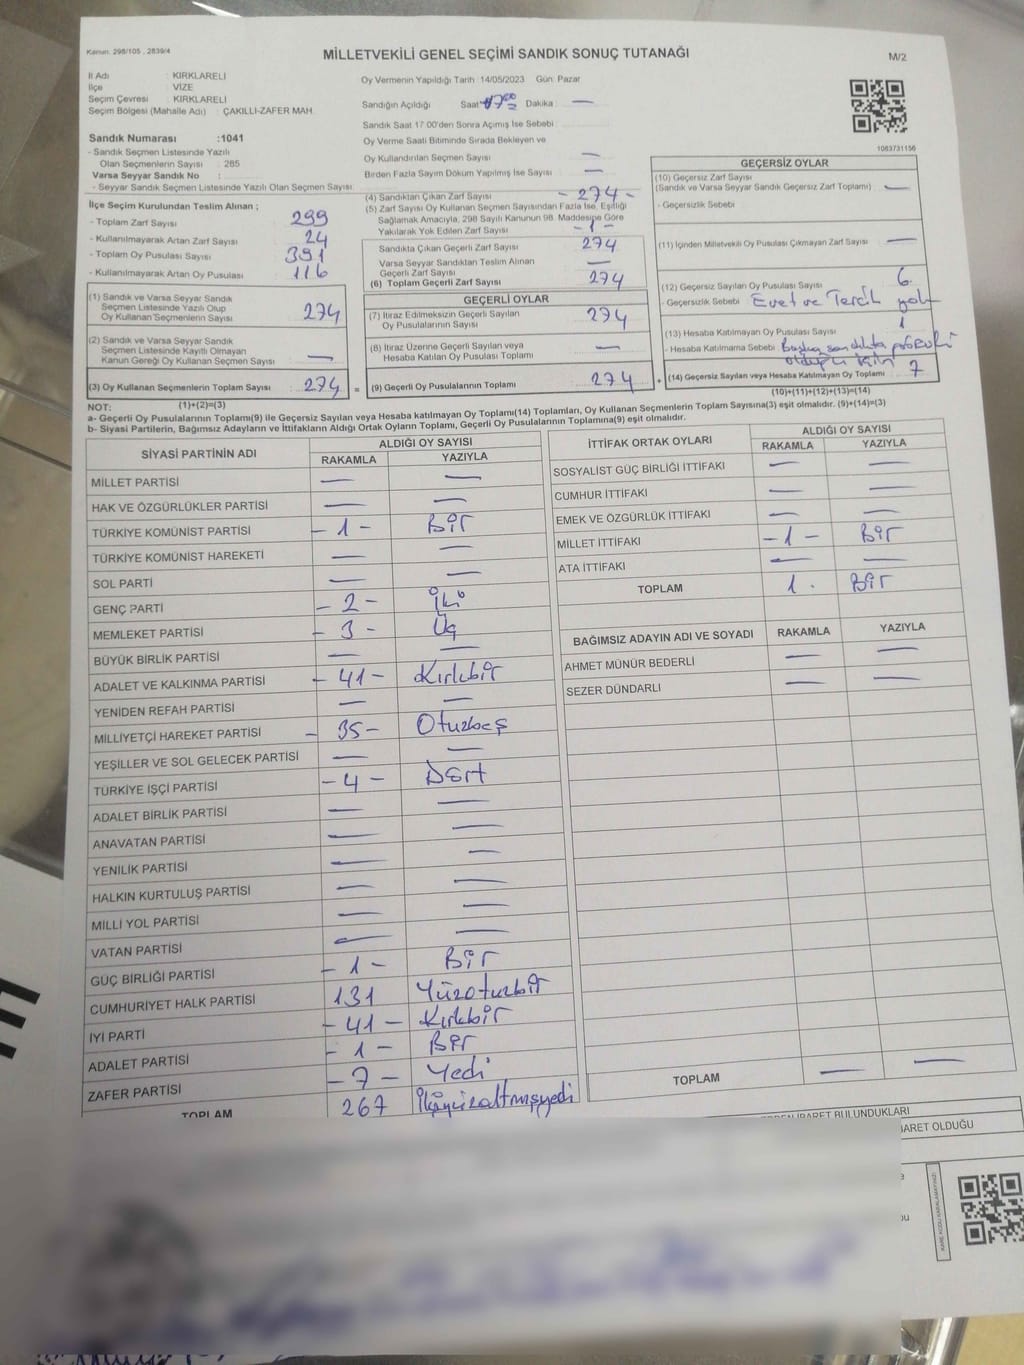 Kanun: 298/105 , 2839/4
MİLLETVEKİLİ GENEL SEÇİMİ SANDIK SONUÇ TUTANAĞI
M/2
İl Adı : KIRKLARELİ
İlçe : VİZE
Seçim Çevresi : KIRKLARELİ
Seçim Bölgesi (Mahalle Adı) : ÇAKILLI-ZAFER MAH.
Oy Vermenin Yapıldığı Tarih : 14/05/2023 Gün: Pazar
Sandığın Açıldığı Saat: 17:00 Dakika: —
Sandık Saat 17:00'den Sonra Açılmış İse Sebebi :
Sandık Numarası :1041
- Sandık Seçmen Listesinde Yazılı
Olan Seçmenlerin Sayısı : 285
Varsa Seyyar Sandık No :
- Seyyar Sandık Seçmen Listesinde Yazılı Olan Seçmen Sayısı:
Oy Verme Saati Bitiminde Sırada Bekleyen ve
Oy Kullandırılan Seçmen Sayısı : —
Birden Fazla Sayım Döküm Yapılmış İse Sayısı : —
1083731156
İlçe Seçim Kurulundan Teslim Alınan ;
- Toplam Zarf Sayısı : 299
- Kullanılmayarak Artan Zarf Sayısı : 24
- Toplam Oy Pusulası Sayısı : 391
- Kullanılmayarak Artan Oy Pusulası : 116
(1) Sandık ve Varsa Seyyar Sandık
Seçmen Listesinde Yazılı Olup
Oy Kullanan Seçmenlerin Sayısı : 274
(2) Sandık ve Varsa Seyyar Sandık
Seçmen Listesinde Kayıtlı Olmayan
Kanun Gereği Oy Kullanan Seçmen Sayısı : —
(3) Oy Kullanan Seçmenlerin Toplam Sayısı : 274 =
(1)+(2)=(3)
(4) Sandıktan Çıkan Zarf Sayısı : - 274 -
(5) Zarf Sayısı Oy Kullanan Seçmen Sayısından Fazla İse, Eşitliği
Sağlamak Amacıyla, 298 Sayılı Kanunun 98. Maddesine Göre
Yakılarak Yok Edilen Zarf Sayısı : - 1 -
Sandıkta Çıkan Geçerli Zarf Sayısı : 274
Varsa Seyyar Sandıktan Teslim Alınan
Geçerli Zarf Sayısı : —
(6) Toplam Geçerli Zarf Sayısı : 274
GEÇERLİ OYLAR
(7) İtiraz Edilmeksizin Geçerli Sayılan
Oy Pusulalarının Sayısı : 274
(8) İtiraz Üzerine Geçerli Sayılan veya
Hesaba Katılan Oy Pusulası Toplamı : —
(9) Geçerli Oy Pusulalarının Toplamı : 274 +
GEÇERSİZ OYLAR
(10) Geçersiz Zarf Sayısı
(Sandık ve Varsa Seyyar Sandık Geçersiz Zarf Toplamı) : —
- Geçersizlik Sebebi :
(11) İçinden Milletvekili Oy Pusulası Çıkmayan Zarf Sayısı : —
(12) Geçersiz Sayılan Oy Pusulası Sayısı : 6
- Geçersizlik Sebebi : Evet ve Tercih yok
(13) Hesaba Katılmayan Oy Pusulası Sayısı : 1
- Hesaba Katılmama Sebebi : Başka sandıkta
olduğu için
(14) Geçersiz Sayılan veya Hesaba Katılmayan Oy Toplamı : 7
(10)+(11)+(12)+(13)=(14)
NOT:
a- Geçerli Oy Pusulalarının Toplamı(9) ile Geçersiz Sayılan veya Hesaba katılmayan Oy Toplamı(14) Toplamları, Oy Kullanan Seçmenlerin Toplam Sayısına(3) eşit olmalıdır. (9)+(14)=(3)
b- Siyasi Partilerin, Bağımsız Adayların ve İttifakların Aldığı Ortak Oyların Toplamı, Geçerli Oy Pusulalarının Toplamına(9) eşit olmalıdır.
SİYASİ PARTİNİN ADI
ALDIĞI OY SAYISI
RAKAMLA YAZIYLA
MİLLET PARTİSİ — —
HAK VE ÖZGÜRLÜKLER PARTİSİ — —
TÜRKİYE KOMÜNİST PARTİSİ - 1 - Bir
TÜRKİYE KOMÜNİST HAREKETİ — —
SOL PARTİ — —
GENÇ PARTİ - 2 - İki
MEMLEKET PARTİSİ - 3 - Üç
BÜYÜK BİRLİK PARTİSİ — —
ADALET VE KALKINMA PARTİSİ - 41 - Kırkbir
YENİDEN REFAH PARTİSİ — —
MİLLİYETÇİ HAREKET PARTİSİ - 35 - Otuzbeş
YEŞİLLER VE SOL GELECEK PARTİSİ — —
TÜRKİYE İŞÇİ PARTİSİ - 4 - Dört
ADALET BİRLİK PARTİSİ — —
ANAVATAN PARTİSİ — —
YENİLİK PARTİSİ — —
HALKIN KURTULUŞ PARTİSİ — —
MİLLİ YOL PARTİSİ — —
VATAN PARTİSİ — —
GÜÇ BİRLİĞİ PARTİSİ - 1 - Bir
CUMHURİYET HALK PARTİSİ 131 Yüzotuzbir
İYİ PARTİ - 41 - Kırkbir
ADALET PARTİSİ - 1 - Bir
ZAFER PARTİSİ - 7 - Yedi
TOPLAM 267 İkiyüzaltmışyedi
İTTİFAK ORTAK OYLARI
ALDIĞI OY SAYISI
RAKAMLA YAZIYLA
SOSYALİST GÜÇ BİRLİĞİ İTTİFAKI — —
CUMHUR İTTİFAKI — —
EMEK VE ÖZGÜRLÜK İTTİFAKI — —
MİLLET İTTİFAKI - 1 - Bir
ATA İTTİFAKI — —
TOPLAM 1. Bir
BAĞIMSIZ ADAYIN ADI VE SOYADI RAKAMLA YAZIYLA
AHMET MÜNÜR BEDERLİ — —
SEZER DÜNDARLI — —
TOPLAM — —
İBARET BULUNDUKLARI
BARET OLDUĞU